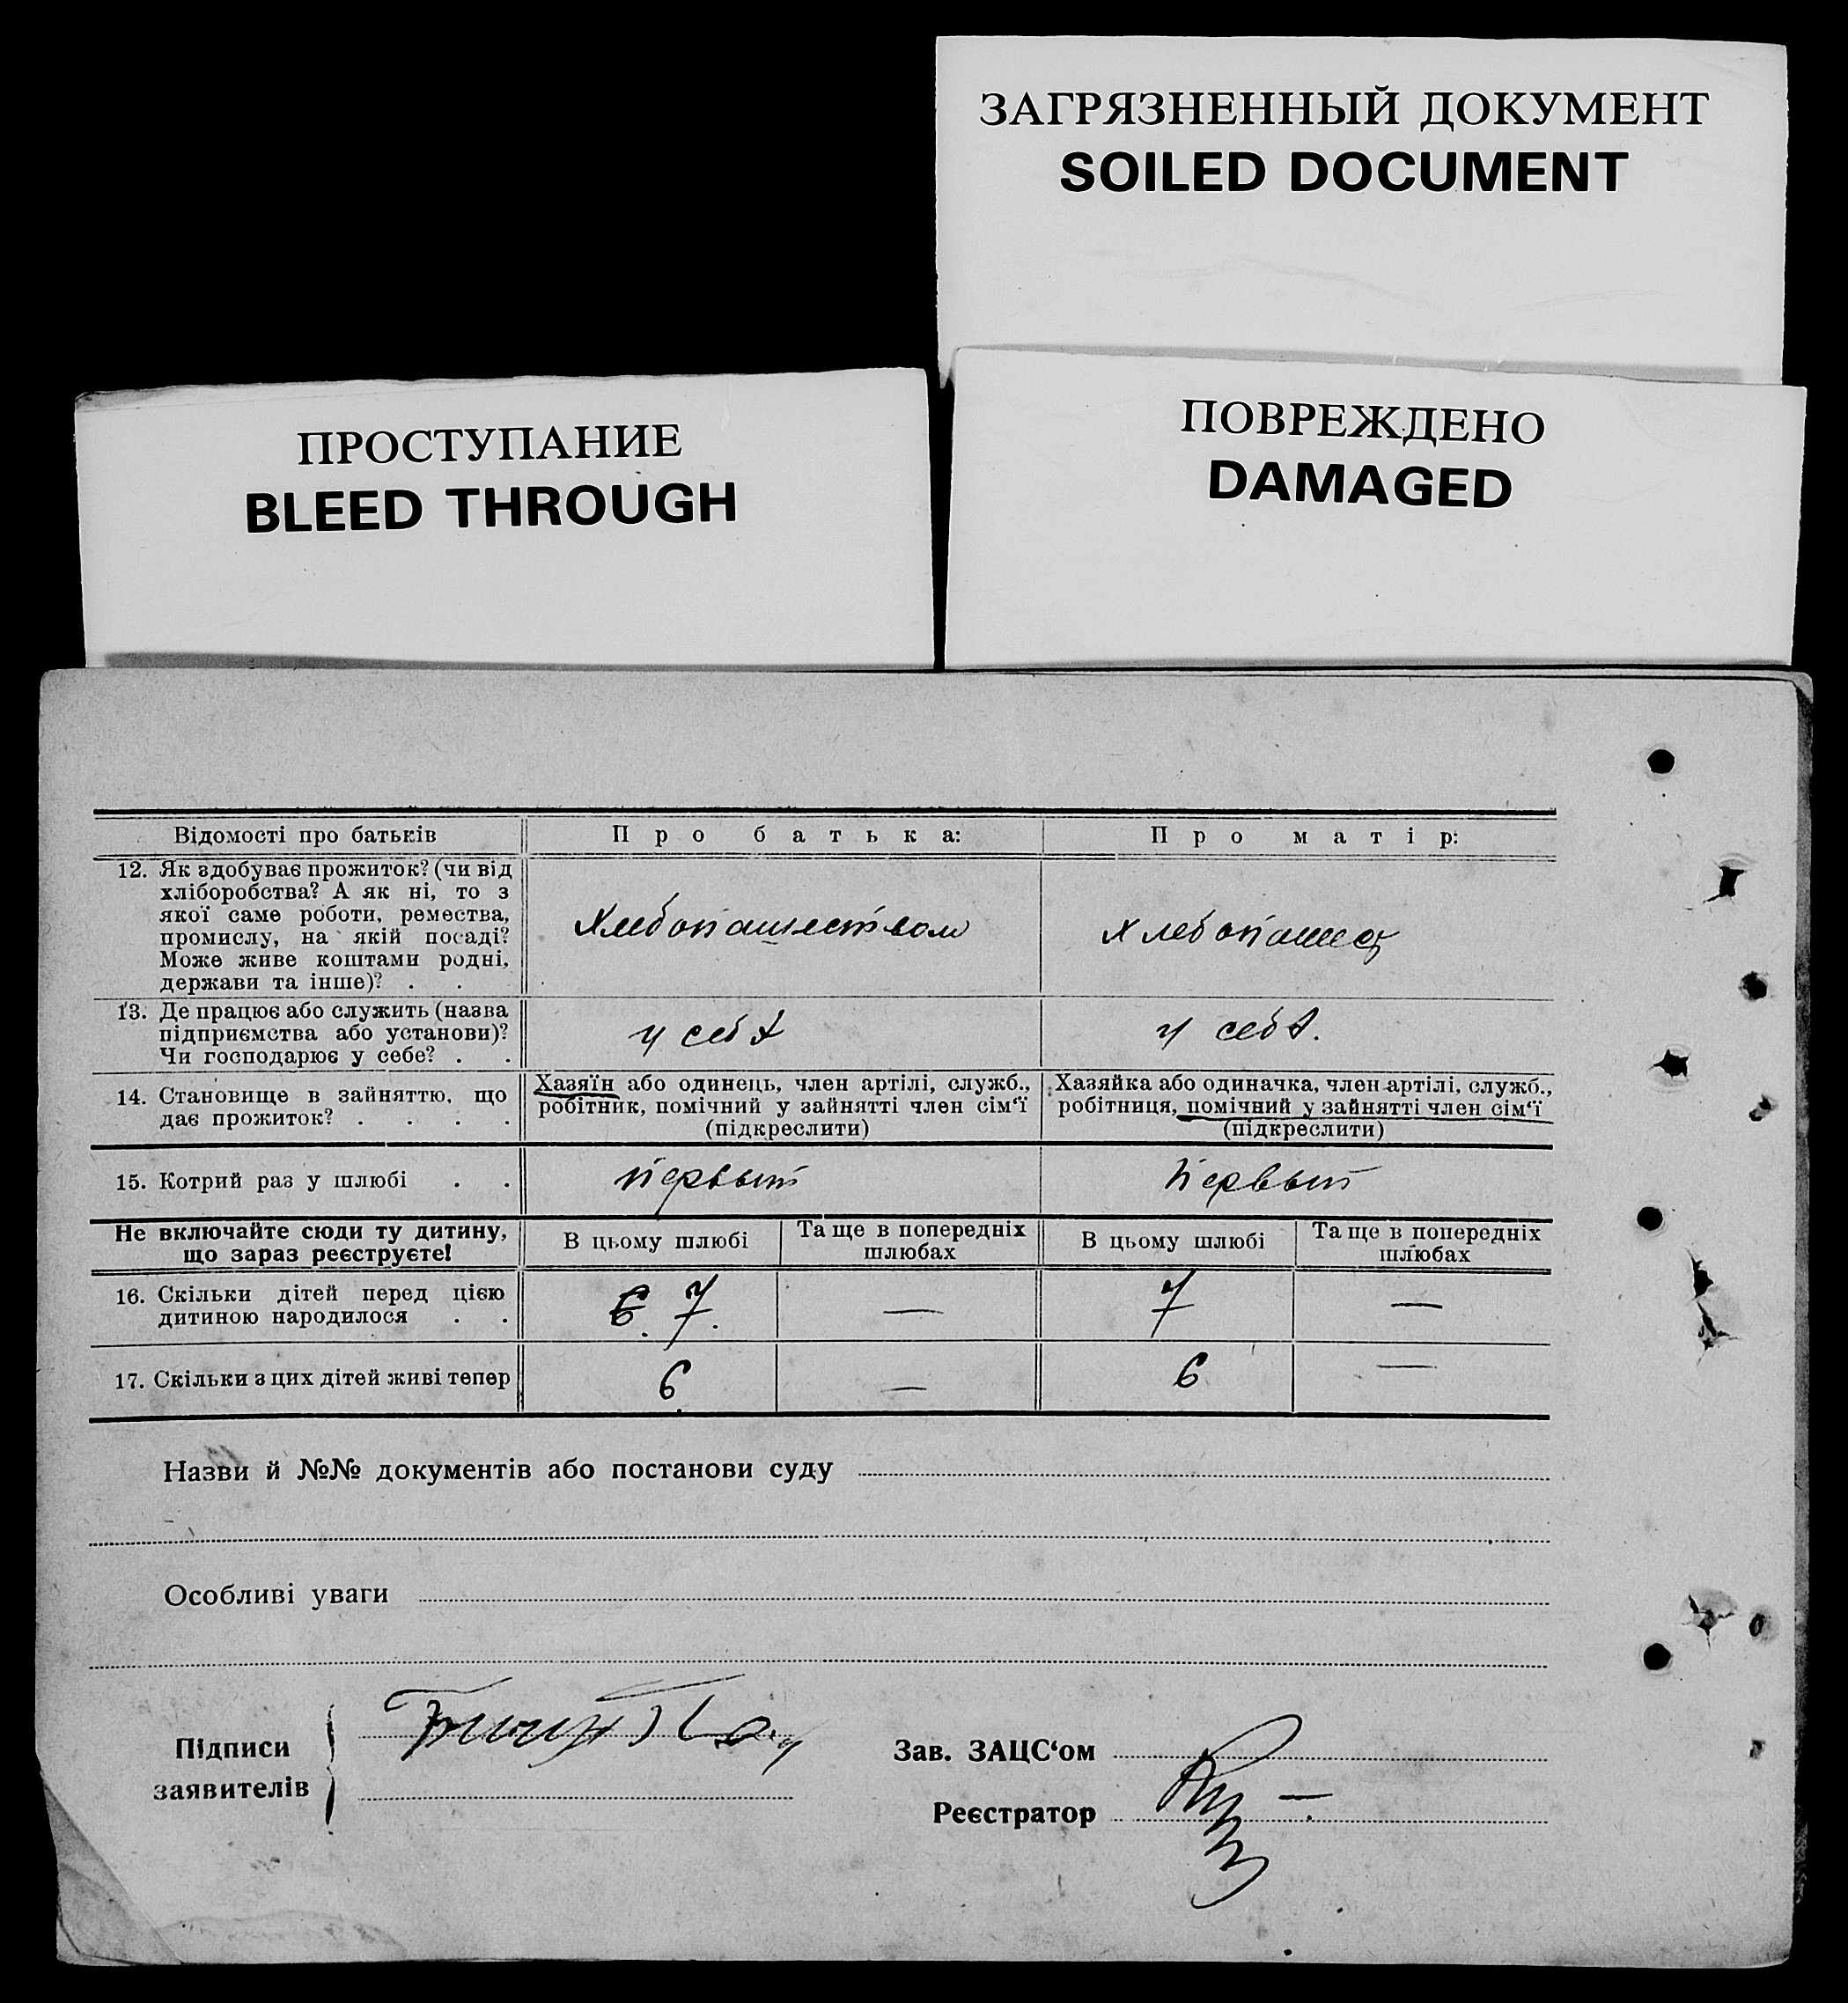 ЗАГРЯЗНЕННЫЙ ДОКУМЕНТ
SOILED DOCUMENT
ПРОСТУПАНИЕ
BLEED THROUGH
ПОВРЕЖДЕНО
DAMAGED
Відомості про батьків
Про батька:
Про матір:
12. Як здобуває прожиток? (чи від
хліборобства? А як ні, то з
якої саме роботи, ремества,
промислу, на якій посаді?
Може живе коштами родні,
держави та інше)? . .
Хлебопашеством
Хлебопашес
13. Де працює або служить (назва
підприємства або установи)?
Чи господарює у себе? . .
у себѣ
у себѣ.
14. Становище в зайняттю, що
дає прожиток? . . . .
Хазяїн або одинець, член артілі, служб.,
робітник, помічний у зайнятті член сім‘ї
(підкреслити)
Хазяйка або одиначка, член артілі, служб.,
робітниця, помічний у зайнятті член сім‘ї
(підкреслити)
15. Котрий раз у шлюбі . .
первый
первый
Не включайте сюди ту дитину,
що зараз реєструєте!
В цьому шлюбі
Та ще в попередніх
шлюбах
В цьому шлюбі
Та ще в попередніх
шлюбах
16. Скільки дітей перед цією
дитиною народилося . .
6. 7.
—
7
—
17. Скільки з цих дітей живі тепер
6
—
6
—
Назви й №№ документів або постанови суду
Особливі уваги
Підписи
заявителів
Зав. ЗАЦС‘ом
Реєстратор